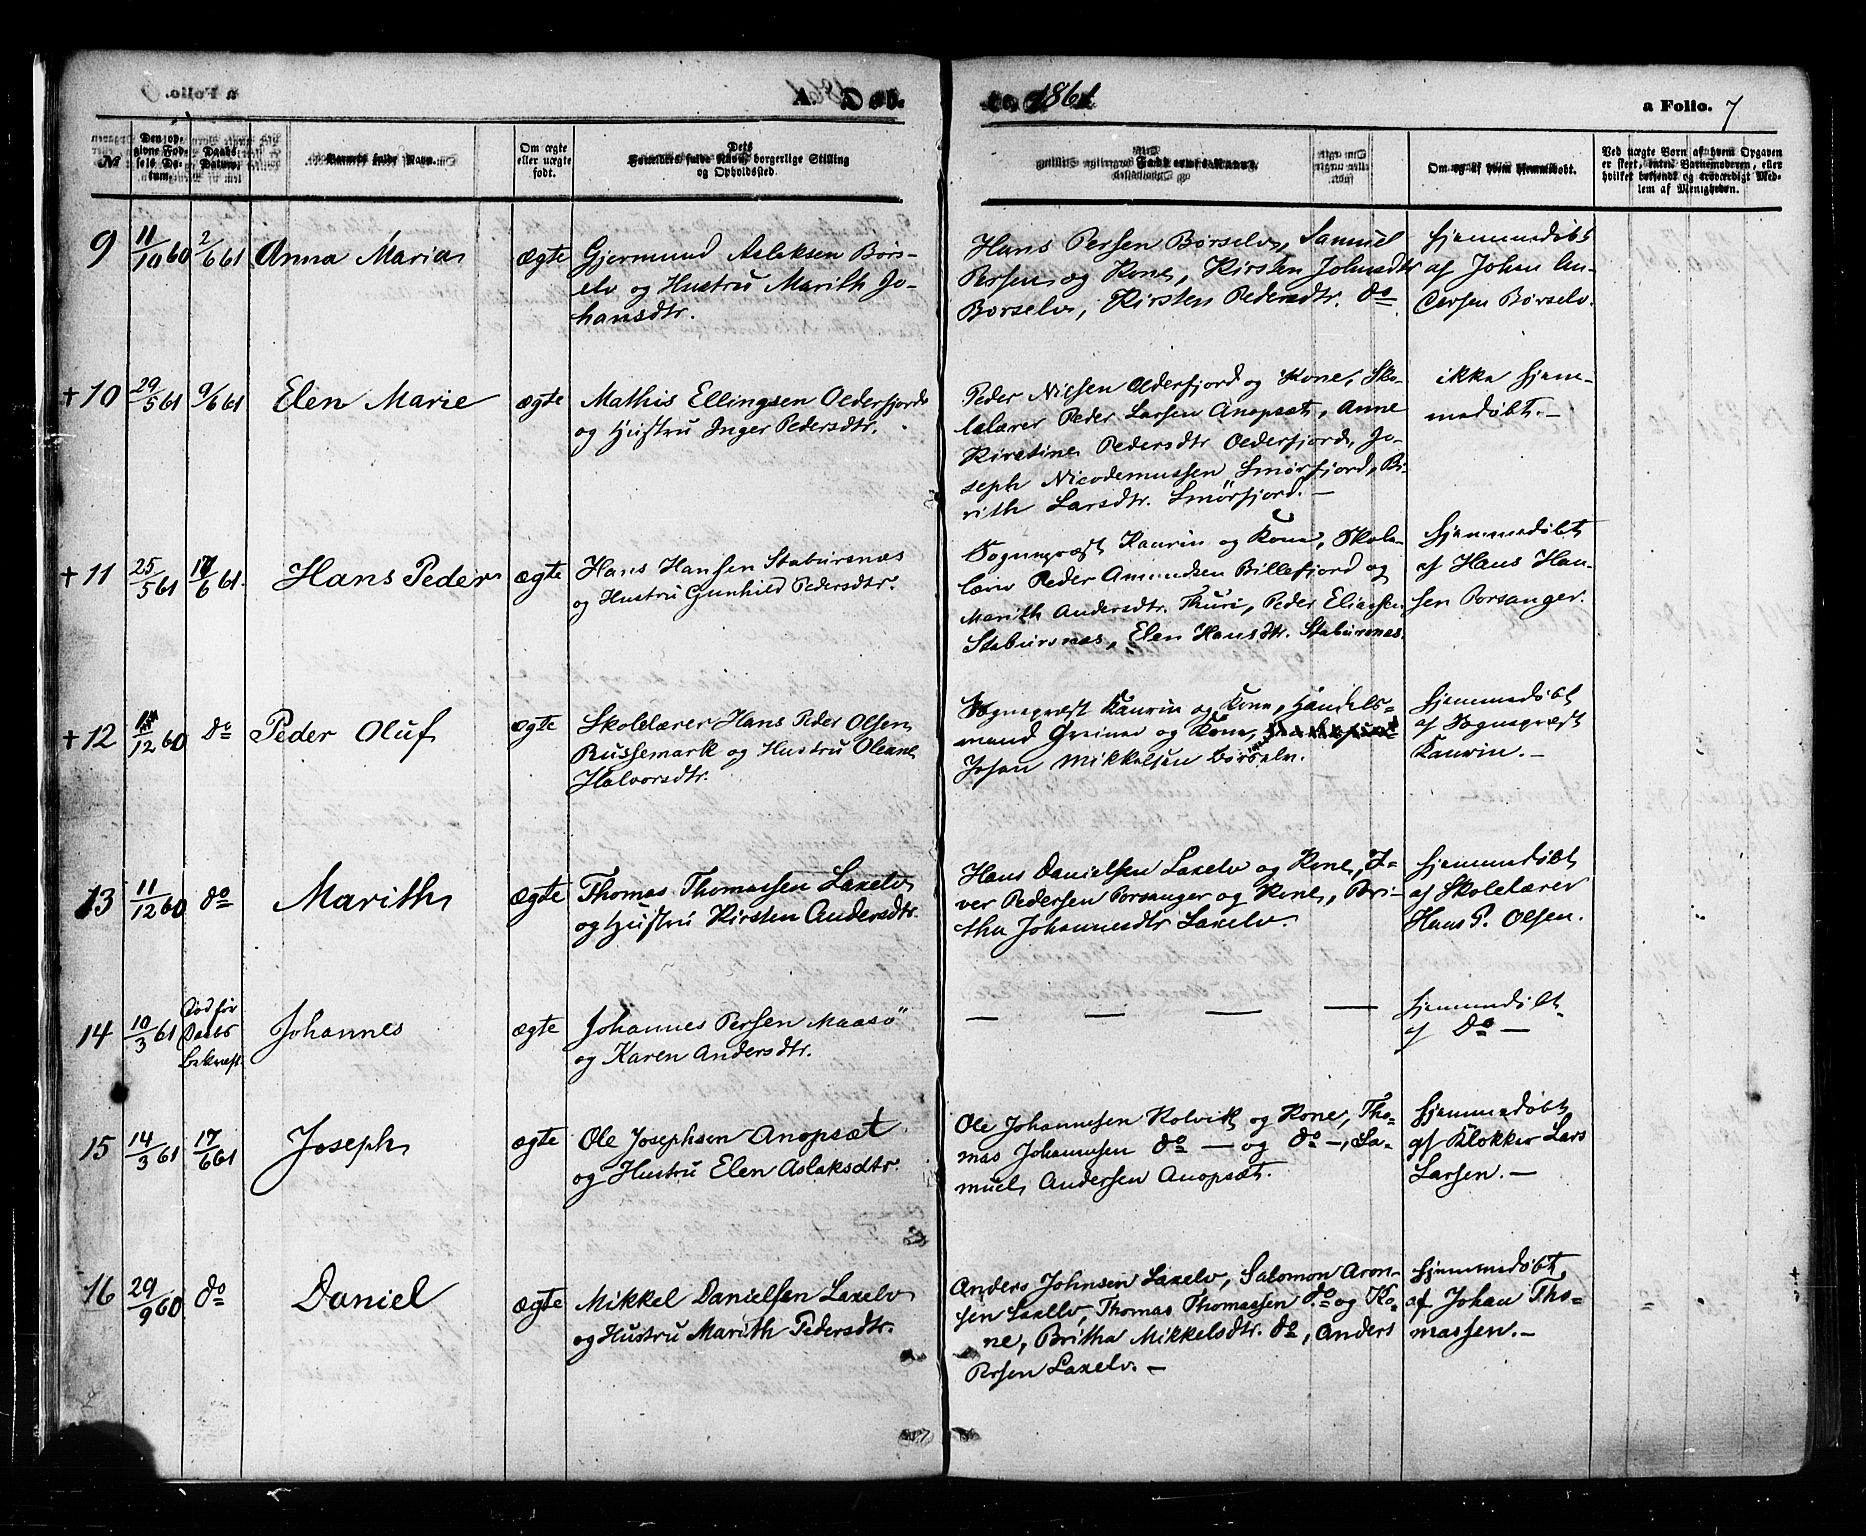 A. Døb. 1861 a Folio. 7
№
Den opgivne Fødsels Datum.
Daabs Datum.
Barnets fulde Navn.
Om ægte eller uægte født.
Dets Forældres fulde Navn, borgerlige Stilling og Opholdssted.
Faddernes Navne.
Om og af hvem hjemmedøbt.
Ved uægte Børn af hvem Opgaven er skeet, enten Barnemoderen, eller hvilket bekjendt og troværdigt Medlem af Menigheden.
9 11/10 60 2/6 61 Anna Maria ægte
Gjermund Aslaksen Børs-
elv og Hustru Marith Jo-
hansdtr.
Hans Persen Børselv, Samuel
Persen og Kone, Kirsten Johnsdtr
Borselv, Kirsten Pedersdtr. do
hjemmedøbt
af Johan An-
dersen Børselv.
+10 29/5 61 9/6 61 Elen Marie ægte
Mathis Ellingsen Olderfjord
og Hustru Inger Pedersdtr.
Peder Nielsen Olderfjord og Kone, Sko-
lelærer Peder Larsen Anopsæt, Anne
Kirstine Pedersdtr Olderfjord, Jo-
seph Nicodemussen Smørfjord, Be-
rith Larsdtr. Smørfjord. —
ikke hjem-
medøbt. —
+11 25/5 61 17/6 61. Hans Peder ægte
Hans Hansen Stabursnæs
og Hustru Gunhild Pedersdtr.
Sognepræst Kaurin og Kone, Skole-
lærer Peder Amundsen Billefjord og
Marith Andersdtr. Thuri, Peder Eliassen
Stabursnæs, Elen Hansdtr. Stabursnæs.
hjemmedøbt
af Hans Han-
sen Porsanger.
+12 /12 60 do Peder Oluf ægte
Skolelærer Hans Peder Olsen
Russemark og Hustru Oleane
Halvorsdtr.
Sognepræst Kaurin og Kone, Handels-
mand Greiner og Kone,
Johan Mikkelsen Børselv.
hjemmedøbt
af Sognepræst
Kaurin. —
13 11/12 60 do Marith ægte
Thomas Thomassen Laxelv
og Hustru Kirsten Andersdtr.
Hans Danielsen Laxelv og Kone, I-
ver Pedersen Porsanger og Kone, Bri-
tha Johannesdtr Laxelv.
hjemmedøbt
af Skolelærer
Hans P. Olsen.
14 10/3 61 Død før
Daabs
bekræft. Johannes ægte
Johannes Persen Maasö
og Karen Andersdtr.
— — — —
hjemmedøbt
af Do —
15 14/3 61 17/6 61 Joseph ægte
Ole Josephsen Anopsæt
og Hustru Elen Aslaksdtr.
Ole Johannesen Kolvik og Kone, Tho-
mas Johannesen do — og do —, Sa-
muel Andersen Anopsæt.
hjemmedøbt
af Klokker Lars
Larsen. —
16 29/9 60 do Daniel ægte
Mikkel Danielsen Laxelv
og Hustru Marith Pedersdtr.
Anders Johnsen Laxelv, Salomon Aron-
sen Laxelv, Thomas Thomassen do og Ko-
ne, Britha Mikkelsdtr. do, Anders
Persen Laxelv. —
hjemmedøbt
af Johan Tho-
massen. —